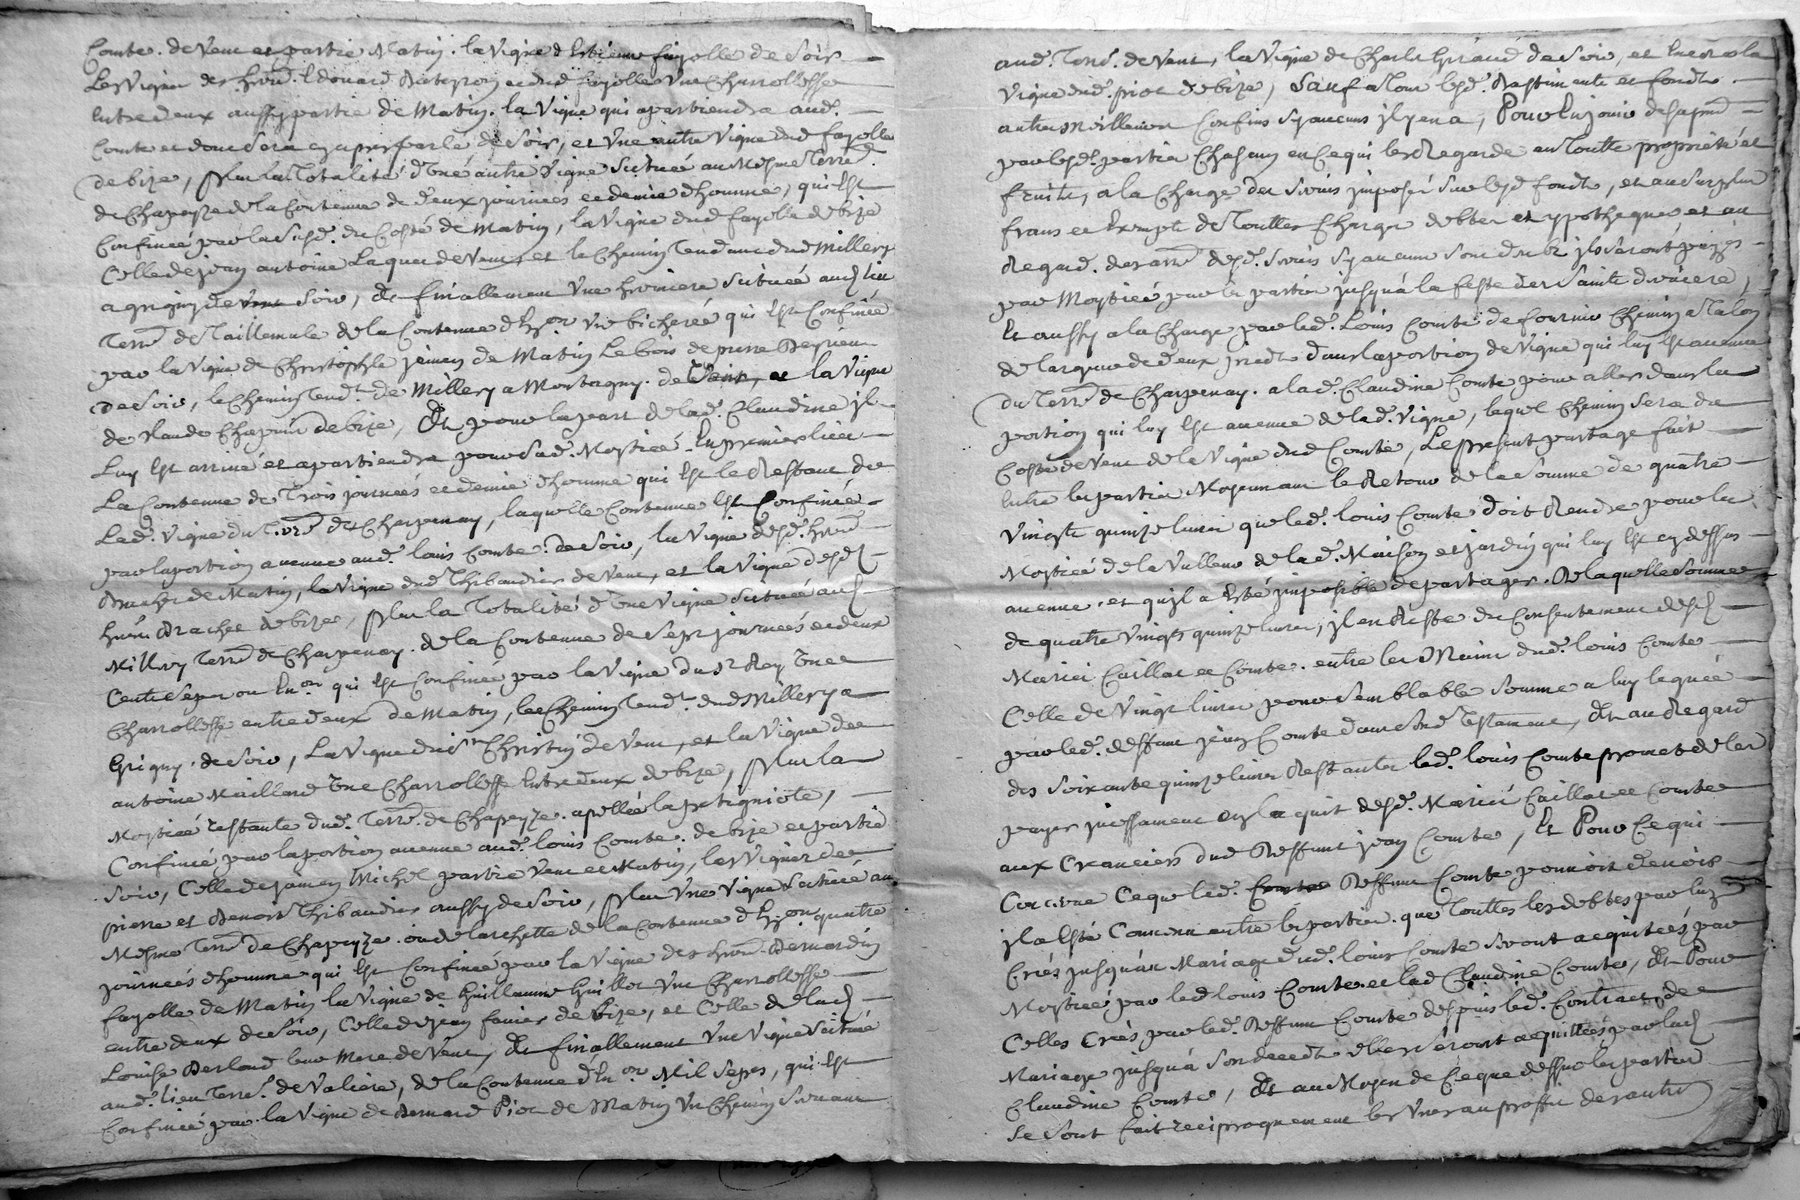 Comte. de Vent et partie Matin. la Vigne d'Estienne fayolle de Soir
Les Vignes des hoirs. Edouard Bateyron et dud fayolle Une Charrollesse
Entre deux aussy partie de Matin. la Vigne qui apartiendra aud.
Comte et dont sera cy apres parlé de Soir, et Une autre Vigne dud fayolle
de bize, plus la Totalité d'Une autre Vigne Scituée au Mesme Terr.
de Chapeyze de la Contenue de deux journées et demie d'homme, qui Est
Confinée par la Susd. du Costé de Matin, la Vigne dud fayolle de bize
Celle de jean antoine Laquet de Vent, et le Chemin Tendant dud Millery
a grigny de Soir, Et finallement Une Scituée aud. lieu
Terr. de Taillemule de la Contenue d'Env.on Une bicherée qui Est Confinée
par la Vigne de Christophle jamen de Matin Le bois de pierre
de Soir, le Chemin Tend.t de Millery a Montagny. de Vent, et la Vigne
de Claude Chapuis de bize, Et pour la part de lad. Claudine jl
Luy Est arrivé et apartiendra pour Sad. Moytieé. En premier lieu
La Contenue de Trois journées et demie d'homme qui Est le Restant de
Lad. Vigne du Terr. de Charpenay, laquelle Contenue Est Confinée
par la portion avenue aud. louis Comte. de Soir, la Vigne desd. hoirs
Brachet de Matin, la Vigne dud Thibaudier de Vent, et la Vigne desd.
hoirs Brachet de bize, plus la Totalité d'Une Vigne Scituée aud.
Millery Terr. de Charpenay. de la Contenue de Sept journées et deux
Cents Seps ou Env.on qui Est Confinée par la Vigne du S.r Rey Une
Charrollesse entre deux de Matin, le Chemin Tend.t dud Millery a
Grigny. de Soir, La Vigne du S.r Christin de Vent, et la Vigne de
antoine Maillard Une Charrollesse Entre deux de bize, plus la
Moytieé restante dud. Terr. de Chapeyze. apellée la petigniote,
Confinée par la portion avenue aud. louis Comte. de bize et partie
Soir, Celle de jamen Michel partie Vent et Matin, les Vignes de
pierre et Benoit Thibaudier aussy de Soir, plus Une Vigne Scituée au
Mesme Terr. de Chapeyze. ou de larchette de la Contenue d'Env.on quatre
journées d'homme qui Est Confinée par la Vigne des hoirs. Bernardin
fayolle de Matin la Vigne de Guillaume Guillot Une Charrollesse
entre deux de Soir, Celle de jean favier de bize, et Celle de lad.
Louise Berloud leur Mere de Vent, Et finallement Une Vigne Scituée
aud. lieu Terr. de Valiere, de la Contenue d'Env.on Mil Seps, qui Est
Confinée par la Vigne de Bernard Piot de Matin Un Chemin Servant
aud. Tend. de Vent, la Vigne de Charle Giraud de Soir, et Encor la
Vigne dud. piot de bize, Sauf a Tout lesd. Bastiments et fonds
autres Meilleurs Confins Sy aucuns jl y en a, Pour En jouir desapnt
par lesd. partie Chacun en Ce qui les Regarde en Toutte proprieté et
fruits, a la Charge des Servis jmposés Sur lesd fonds, et au Surplus
francs et Exempts de Touttes Charges debtes et ypotheques et au
Regard. des arr. desd. Servis Sy aucuns Sont dubt jls Seront payés
par Moytieé par les partie jusqu'a la feste de la Sainte derniere,
Et aussy a la Charge par led. Louis Comte de fournir Chemin a Talon
de largeur de deux pieds dans la portion de Vigne qui luy Est avenue
du Terr. de Charpenay. a lad. Claudine Comte pour aller dans la
portion qui luy Est avenue de lad. Vigne, lequel Chemin Sera du
Costé de Vent de la Vigne dud Comte, Le present partage fait
Entre les partie Moyennant le Retour de la Somme de quatre
Vingts quinze livres que led. louis Comte doit Rendre pour la
Moytieé de la Valleur de lad. Maison et jardin qui luy Est cy dessus
avenue, et qu'jl a Esté jmposible de partager. De laquelle Somme
de quatre Vingts quinze livres, jl en Reste du Consentement desd.
Mariés Caillat et Comte. entre les Mains dud. louis Comte
Celle de Vingt livres pour Semblable Somme a luy leguée
par led. deffunt jean Comte dans Sond. Testament, Et au Regard
des Soixante quinze livres Restantes led. louis Comte promet de les
payer jncessament a l'acquit desd. Mariés Caillat et Comte
aux Creanciers dud Deffunt jean Comte, Et Pour Ce qui
Concerne Ce que led. Deffunt Comte pouvoit devoir
jl a Esté Convenu entre les partie. que Touttes les debtes par luy
Creés jusqu'au Mariage dud. louis Comte Seront acquitées par
Moytieé par led louis Comte et lad Claudine Comte, Et Pour
Celles Creés par led. Deffunt Comte depuis led. Contract de
Mariage jusqu'a Son deceds elles Seront acquittées par lad.
Claudine Comte, Et au Moyen de Ce que dessus les partie
Se Sont fait reciproquement les Unes au proffit des autres